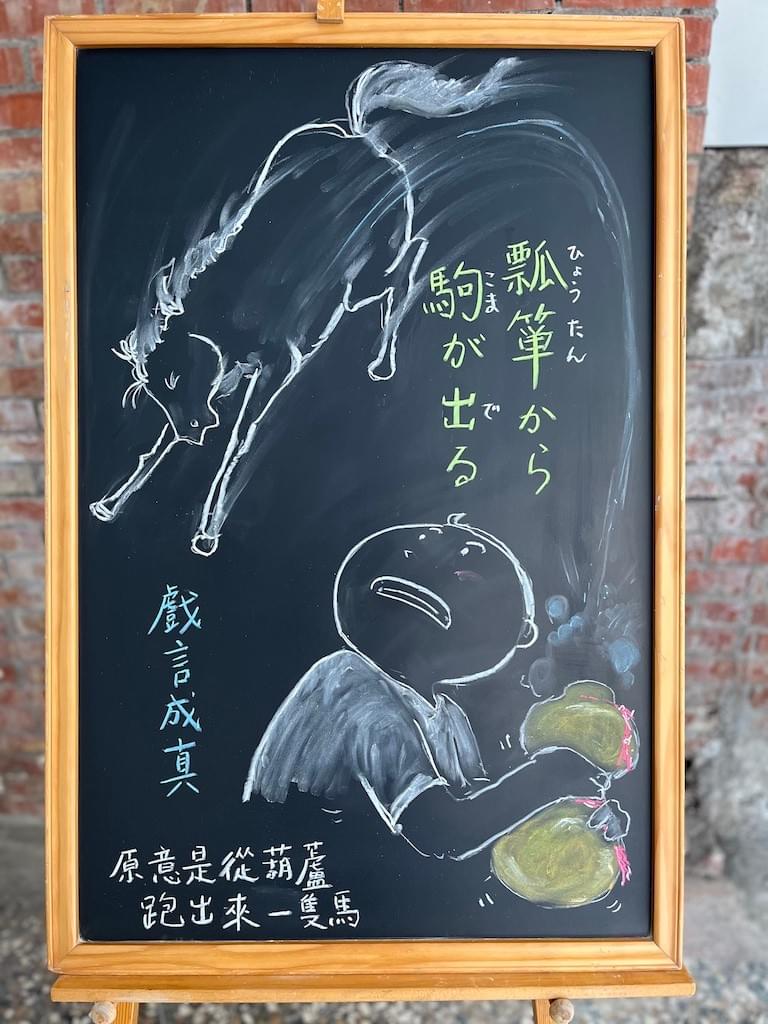 瓢箪から
ひょうたん
駒が出る
こま
で
戲言成真
原意是從葫蘆
跑出來一隻馬